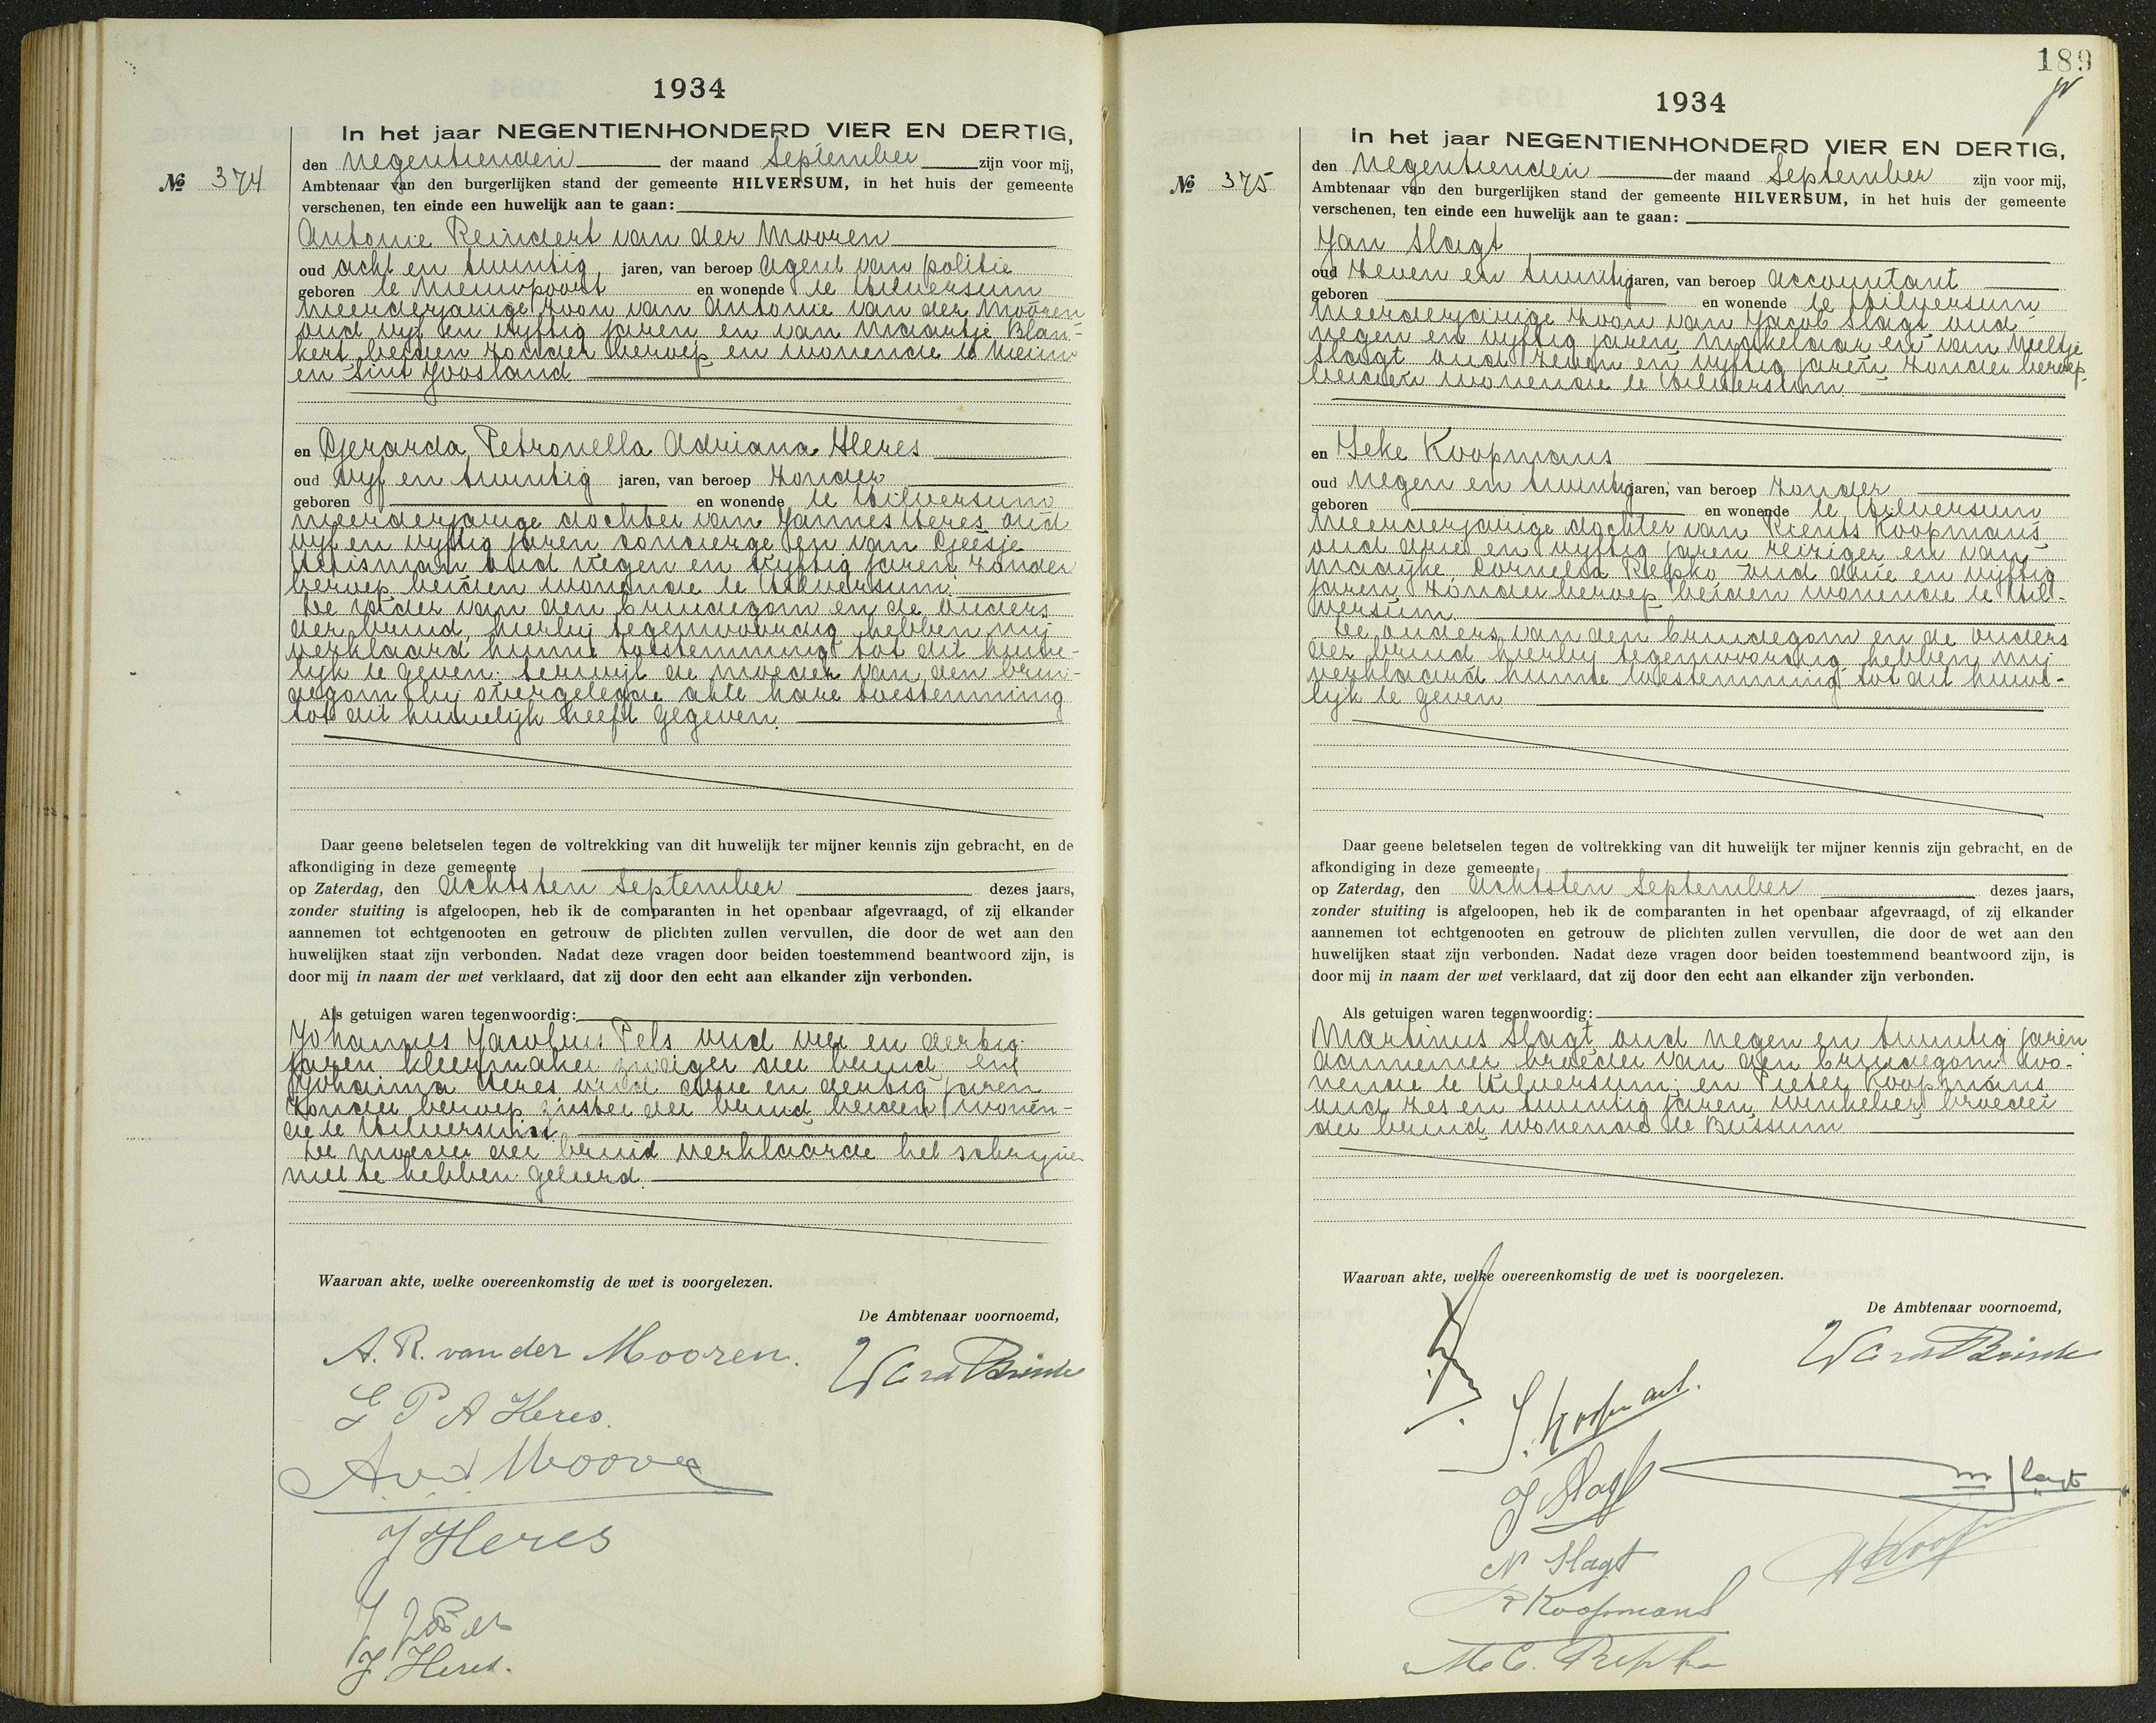 1934
In het jaar NEGENTIENHONDERD VIER EN DERTIG,
den negentienden der maand September zijn voor mij,
№ 374
Ambtenaar van den burgerlijken stand der gemeente HILVERSUM, in het huis der gemeente
verschenen, ten einde een huwelijk aan te gaan:
Antonie Reindert van der Mooren
oud acht en twintig jaren, van beroep agent van politie
geboren te Nieuwpoort en wonende te Hilversum
meerderjarige zoon van Antonie van der Mooren
oud vijf en vijftig jaren en van Maartje Blan-
kert beiden zonder beroep en wonende te Nieuw
en Sint Joosland
en Gerarda Petronella Adriana Heres
oud vijf en twintig jaren, van beroep zonder
geboren en wonende te Hilversum
meerderjarige dochter van Jannes Heres oud
vijf en vijftig jaren concierge en van Geesje
oud negen en vijftig jaren zonder
beroep beiden wonende te Hilversum.
De vader van den bruidegom en de ouders
der bruid, hierbij tegenwoordig hebben mij
verklaard hunne toestemming tot dit huwe-
lijk te geven; terwijl de moeder van den brui-
degom bij overgelegde akte hare toestemming
tot dit huwelijk heeft gegeven.
Daar geene beletselen tegen de voltrekking van dit huwelijk ter mijner kennis zijn gebracht, en de
afkondiging in deze gemeente
op Zaterdag, den achtsten September dezes jaars,
zonder stuiting is afgeloopen, heb ik de comparanten in het openbaar afgevraagd, of zij elkander
aannemen tot echtgenooten en getrouw de plichten zullen vervullen, die door de wet aan den
huwelijken staat zijn verbonden. Nadat deze vragen door beiden toestemmend beantwoord zijn, is
door mij in naam der wet verklaard, dat zij door den echt aan elkander zijn verbonden.
Als getuigen waren tegenwoordig:
Johannes Jacobus Pels oud vier en dertig
jaren kleermaker zwager der bruid en
Johanna Heres oud drie en dertig jaren
zonder beroep zuster der bruid beiden wonen-
de te Hilversum
De moeder der bruid verklaarde het schrijven
niet te hebben geleerd.
Waarvan akte, welke overeenkomstig de wet is voorgelezen.
De Ambtenaar voornoemd,
A. R. van der Mooren.
G P A Heres.
A v d Moore
J Heres
J J Pels
J Heres.
189
1934
In het jaar NEGENTIENHONDERD VIER EN DERTIG,
den negentienden der maand September zijn voor mij,
№ 375
Ambtenaar van den burgerlijken stand der gemeente HILVERSUM, in het huis der gemeente
verschenen, ten einde een huwelijk aan te gaan:
Jan Slagt
oud zeven en twintig jaren, van beroep accountant
geboren en wonende te Hilversum
meerderjarige zoon van Jacob Slagt oud
negen en vijftig jaren makelaar en van Neeltje
Slagt oud zeven en vijftig jaren zonder beroep
beiden wonende te Hilversum
en Seke Koopmans
oud negen en twintig jaren, van beroep zonder
geboren en wonende te Hilversum
meerderjarige dochter van Rients Koopmans
oud drie en vijftig jaren reiziger en van
Maaijke Cornelia Repko oud drie en vijftig
jaren zonder beroep beiden wonende te Hil-
versum
De ouders van den bruidegom en de ouders
der bruid hierbij tegenwoordig hebben mij
verklaard hunne toestemming tot dit huwe-
lijk te geven
Daar geene beletselen tegen de voltrekking van dit huwelijk ter mijner kennis zijn gebracht, en de
afkondiging in deze gemeente
op Zaterdag, den achtsten September dezes jaars,
zonder stuiting is afgeloopen, heb ik de comparanten in het openbaar afgevraagd, of zij elkander
aannemen tot echtgenooten en getrouw de plichten zullen vervullen, die door de wet aan den
huwelijken staat zijn verbonden. Nadat deze vragen door beiden toestemmend beantwoord zijn, is
door mij in naam der wet verklaard, dat zij door den echt aan elkander zijn verbonden.
Als getuigen waren tegenwoordig:
Martinus Slagt oud negen en twintig jaren
aannemer broeder van den bruidegom wo-
nende te Hilversum; en Pieter Koopmans
oud zes en twintig jaren, winkelier broeder
der bruid wonende te Bussum
Waarvan akte, welke overeenkomstig de wet is voorgelezen.
De Ambtenaar voornoemd,
S. Koopmans.
J Slagt
m Slagt
N Slagt
R Koopmans
M. C. Repko